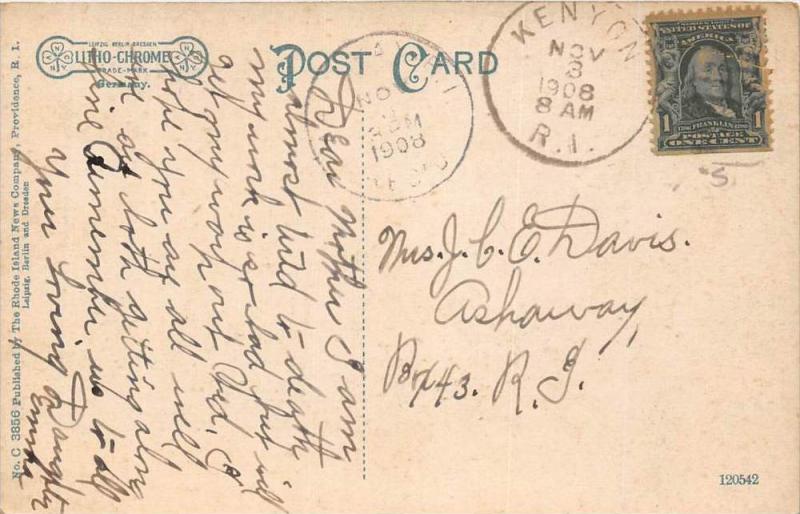 No. C 3856 Published by The Rhode Island News Company, Providence, R. I.
Leipzig, Berlin and Dresden
LEIPZIG BERLIN DRESDEN
LITHO-CHROME
TRADE-MARK
Germany.
POST CARD
NO
AM
1908
KENYON
NOV
3
1908
8 AM
R.I.
UNITED STATES OF
AMERICA
1 FRANKLIN 1
POSTAGE
ONE CENT
Dear Mother I am
almost tired to death
my work is so bad but will
get my wop out
hope you are all well
and are both getting along
fine Remember us to all
Your Loving Daughter
Emma
Mrs. J. C. E. Davis.
Ashaway,
Bx 43. R. I.
120542